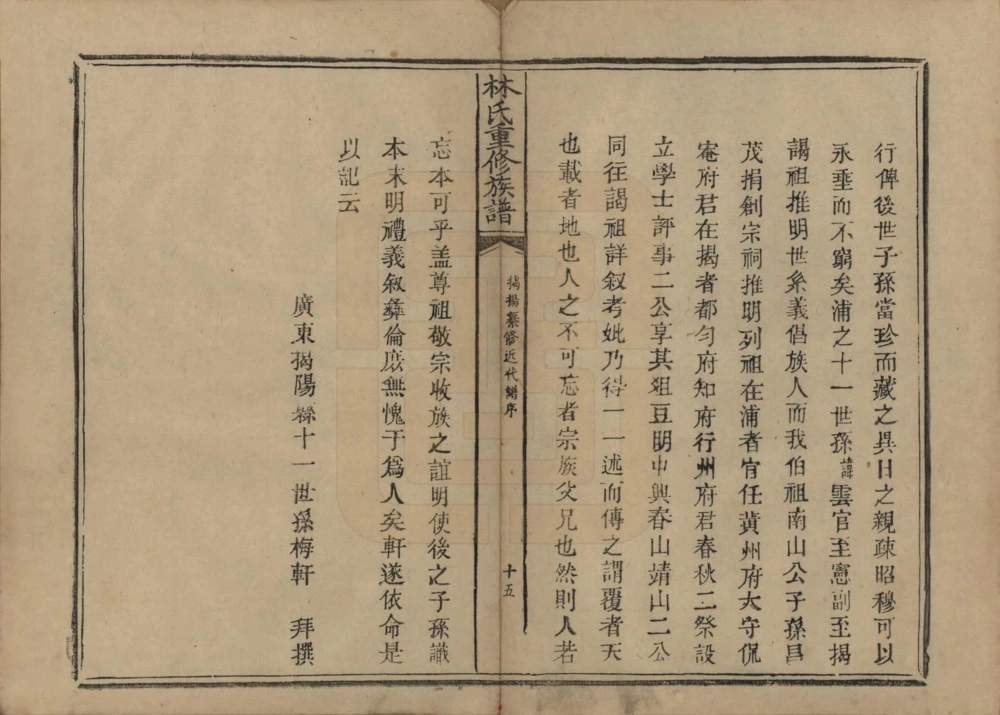 行俾後世子孫當珍而藏之異日之親疎昭穆可以
永垂而不窮矣浦之十一世孫諱雲官至憲副至揭
謁祖推明世系義倡族人而我伯祖南山公子孫昌
茂捐創宗祠推明列祖在浦者官任黄州府大守侃
菴府君在揭者都匀府知府行州府君春秋二祭設
立學士評事二公享其俎豆明中興春山靖山二公
同往謁祖詳叙考妣乃得一一述而傳之謂覆者天
也載者地也人之不可忘者宗族父兄也然則人若
林氏重修族譜
揭揚纂修近代譜序
十五
忘本可乎盖尊祖敬宗收族之誼明使後之子孫識
本末明禮義叙彝倫庶無愧于爲人矣軒遂依命是
以記云
廣東揭陽縣十一世孫梅軒 拜撰